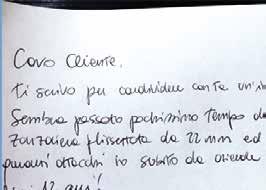 Caro Cliente,
ti scrivo per condividere con te un'in
Sembra passato pochissimo tempo da
Zanzariera plissettata da 22 mm ed
attacchi io subito da aziende
12 anni!